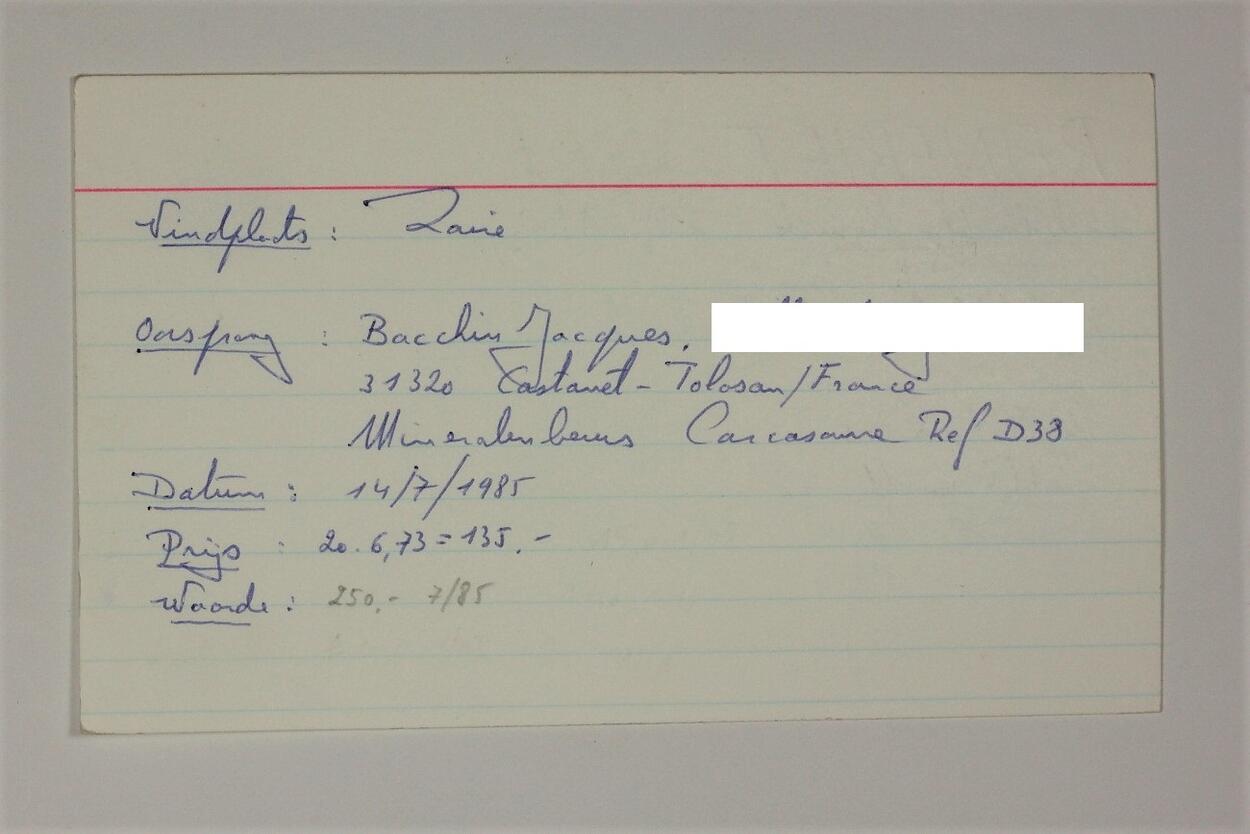 Vindplaats : Zaire
Oorsprong : Bacchin Jacques,
31320 Castanet-Tolosan/France
Mineralenbeurs Carcasonne Ref D38
Datum : 14/7/1985
Prijs : 20. 6,73 = 135.-
Waarde : 250,- 7/85